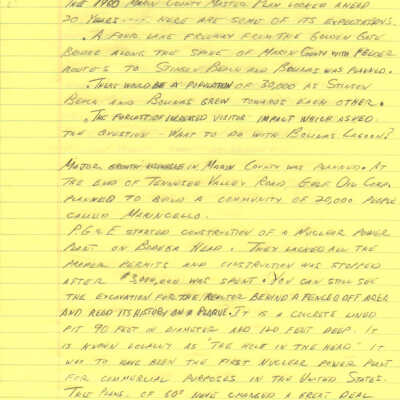 THE 1960 MARIN COUNTY MASTER PLAN LOOKED AHEAD
20 YEARS ---- HERE ARE SOME OF ITS EXPECTATIONS.
. A FOUR LANE FREEWAY FROM THE GOLDEN GATE
BRIDGE ALONG THE SPINE OF MARIN COUNTY WITH FEEDER
ROUTES TO STINSON BEACH AND BOLINAS WAS PLANNED.
. THERE WOULD BE A POPULATION OF 30,000 AS STINSON
BEACH AND BOLINAS GREW TOWARDS EACH OTHER.
. THE FORCAST OF INCREASED VISITOR IMPACT WHICH ASKED
THE QUESTION - WHAT TO DO WITH BOLINAS LAGOON?
MAJOR GROWTH IN MARIN COUNTY WAS PLANNED. AT
THE END OF TENNESSEE VALLEY ROAD, GULF OIL CORP.
PLANNED TO BUILD A COMMUNITY OF 20,000 PEOPLE
CALLED MARINCELLO.
P.G & E STARTED CONSTRUCTION OF A NUCLEAR POWER
PLANT ON BODEGA HEAD. THEY LACKED ALL THE
PROPER PERMITS AND CONSTRUCTION WAS STOPPED
AFTER $3,000,000 WAS SPENT. YOU CAN STILL SEE
THE EXCAVATION FOR THE REACTOR BEHIND A FENCED OFF AREA
AND READ ITS HISTORY ON A PLAQUE. IT IS A CONCRETE LINED
PIT 90 FEET IN DIAMETER AND 120 FEET DEEP. IT
IS KNOWN LOCALLY AS "THE HOLE IN THE HEAD". IT
WAS TO HAVE BEEN THE FIRST NUCLEAR POWER PLANT
FOR COMMERCIAL PURPOSES IN THE UNITED STATES.
THE PLANS OF 60' HAVE CHANGED A GREAT DEAL